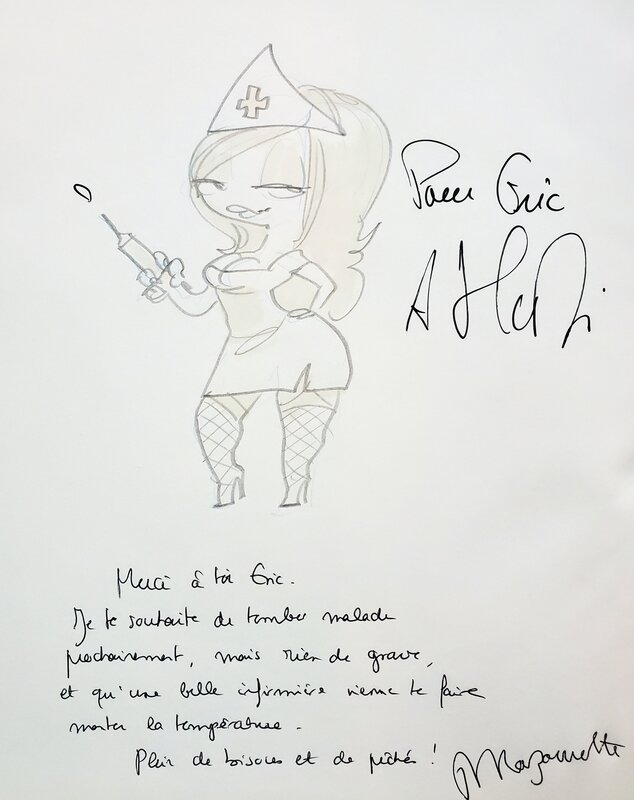 Pour Eric
Merci à toi Eric.
Je te souhaite de tomber malade
prochainement, mais rien de grave,
et qu'une belle infirmière vienne te faire
monter la température.
Plein de bisous et de péchés !